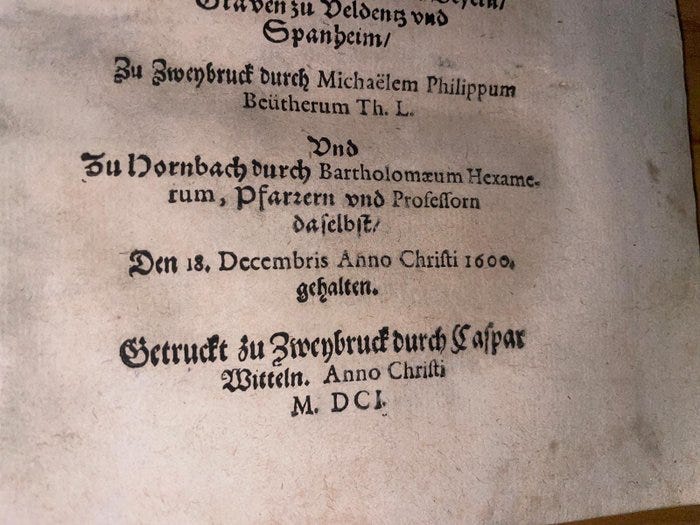 Graven zu Veldentz vnd
Spanheim/
Zu Zweybruck durch Michaëlem Philippum
Beütherum Th. L.
Vnd
Zu Hornbach durch Bartholomæum Hexame-
rum, Pfarrern vnd Professorn
daselbst/
Den 18. Decembris Anno Christi 1600.
gehalten.
Getruckt zu Zweybruck durch Caspar
Witteln. Anno Christi
M. DCI.